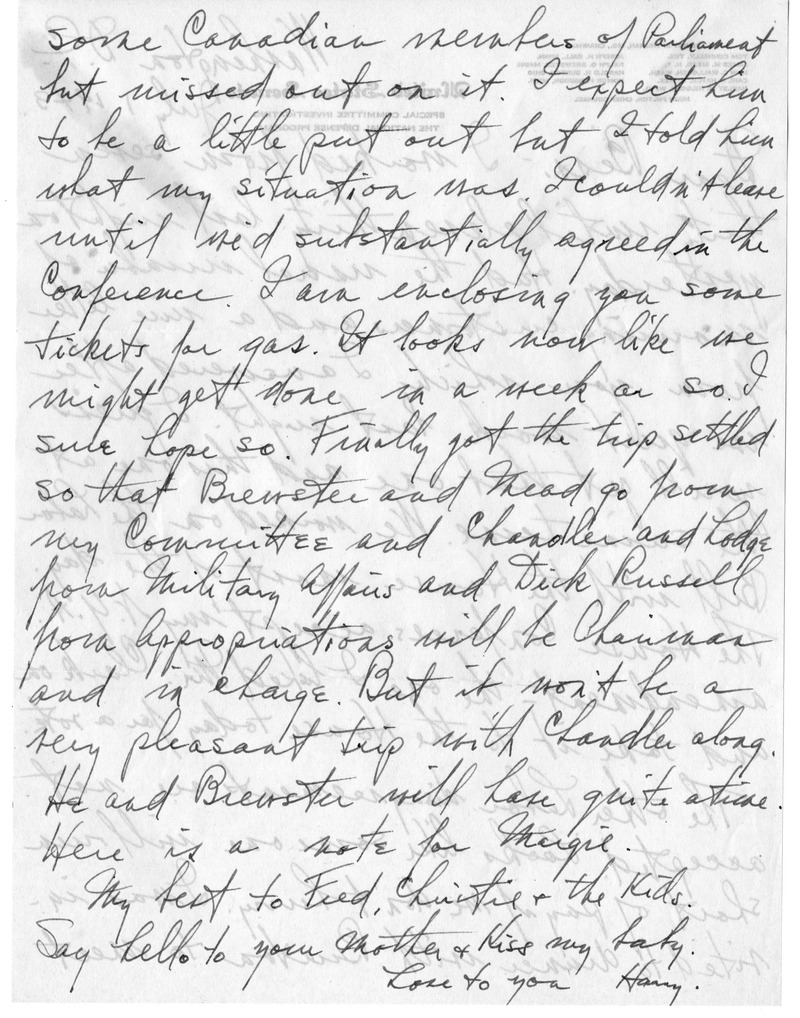 some Canadian members of Parliament
but missed out on it. I expect him
to be a little put out but I told him
what my situation was. I couldn't leave
until we'd substantially agreed in the
Conference. I am enclosing you some
tickets for gas. It looks now like we
might get done in a week or so. I
sure hope so. Finally got the trip settled
so that Brewster and Mead go from
my Committee and Chandler and Lodge
from Military Affairs and Dick Russell
from Appropriations will be Chairman
and in charge. But it won't be a
very pleasant trip with Chandler along.
He and Brewster will have quite a time.
Here is a note for Margie.
My best to Fred, Christie & the Kids.
Say hello to your Mother & Kiss my baby.
Love to you Harry.